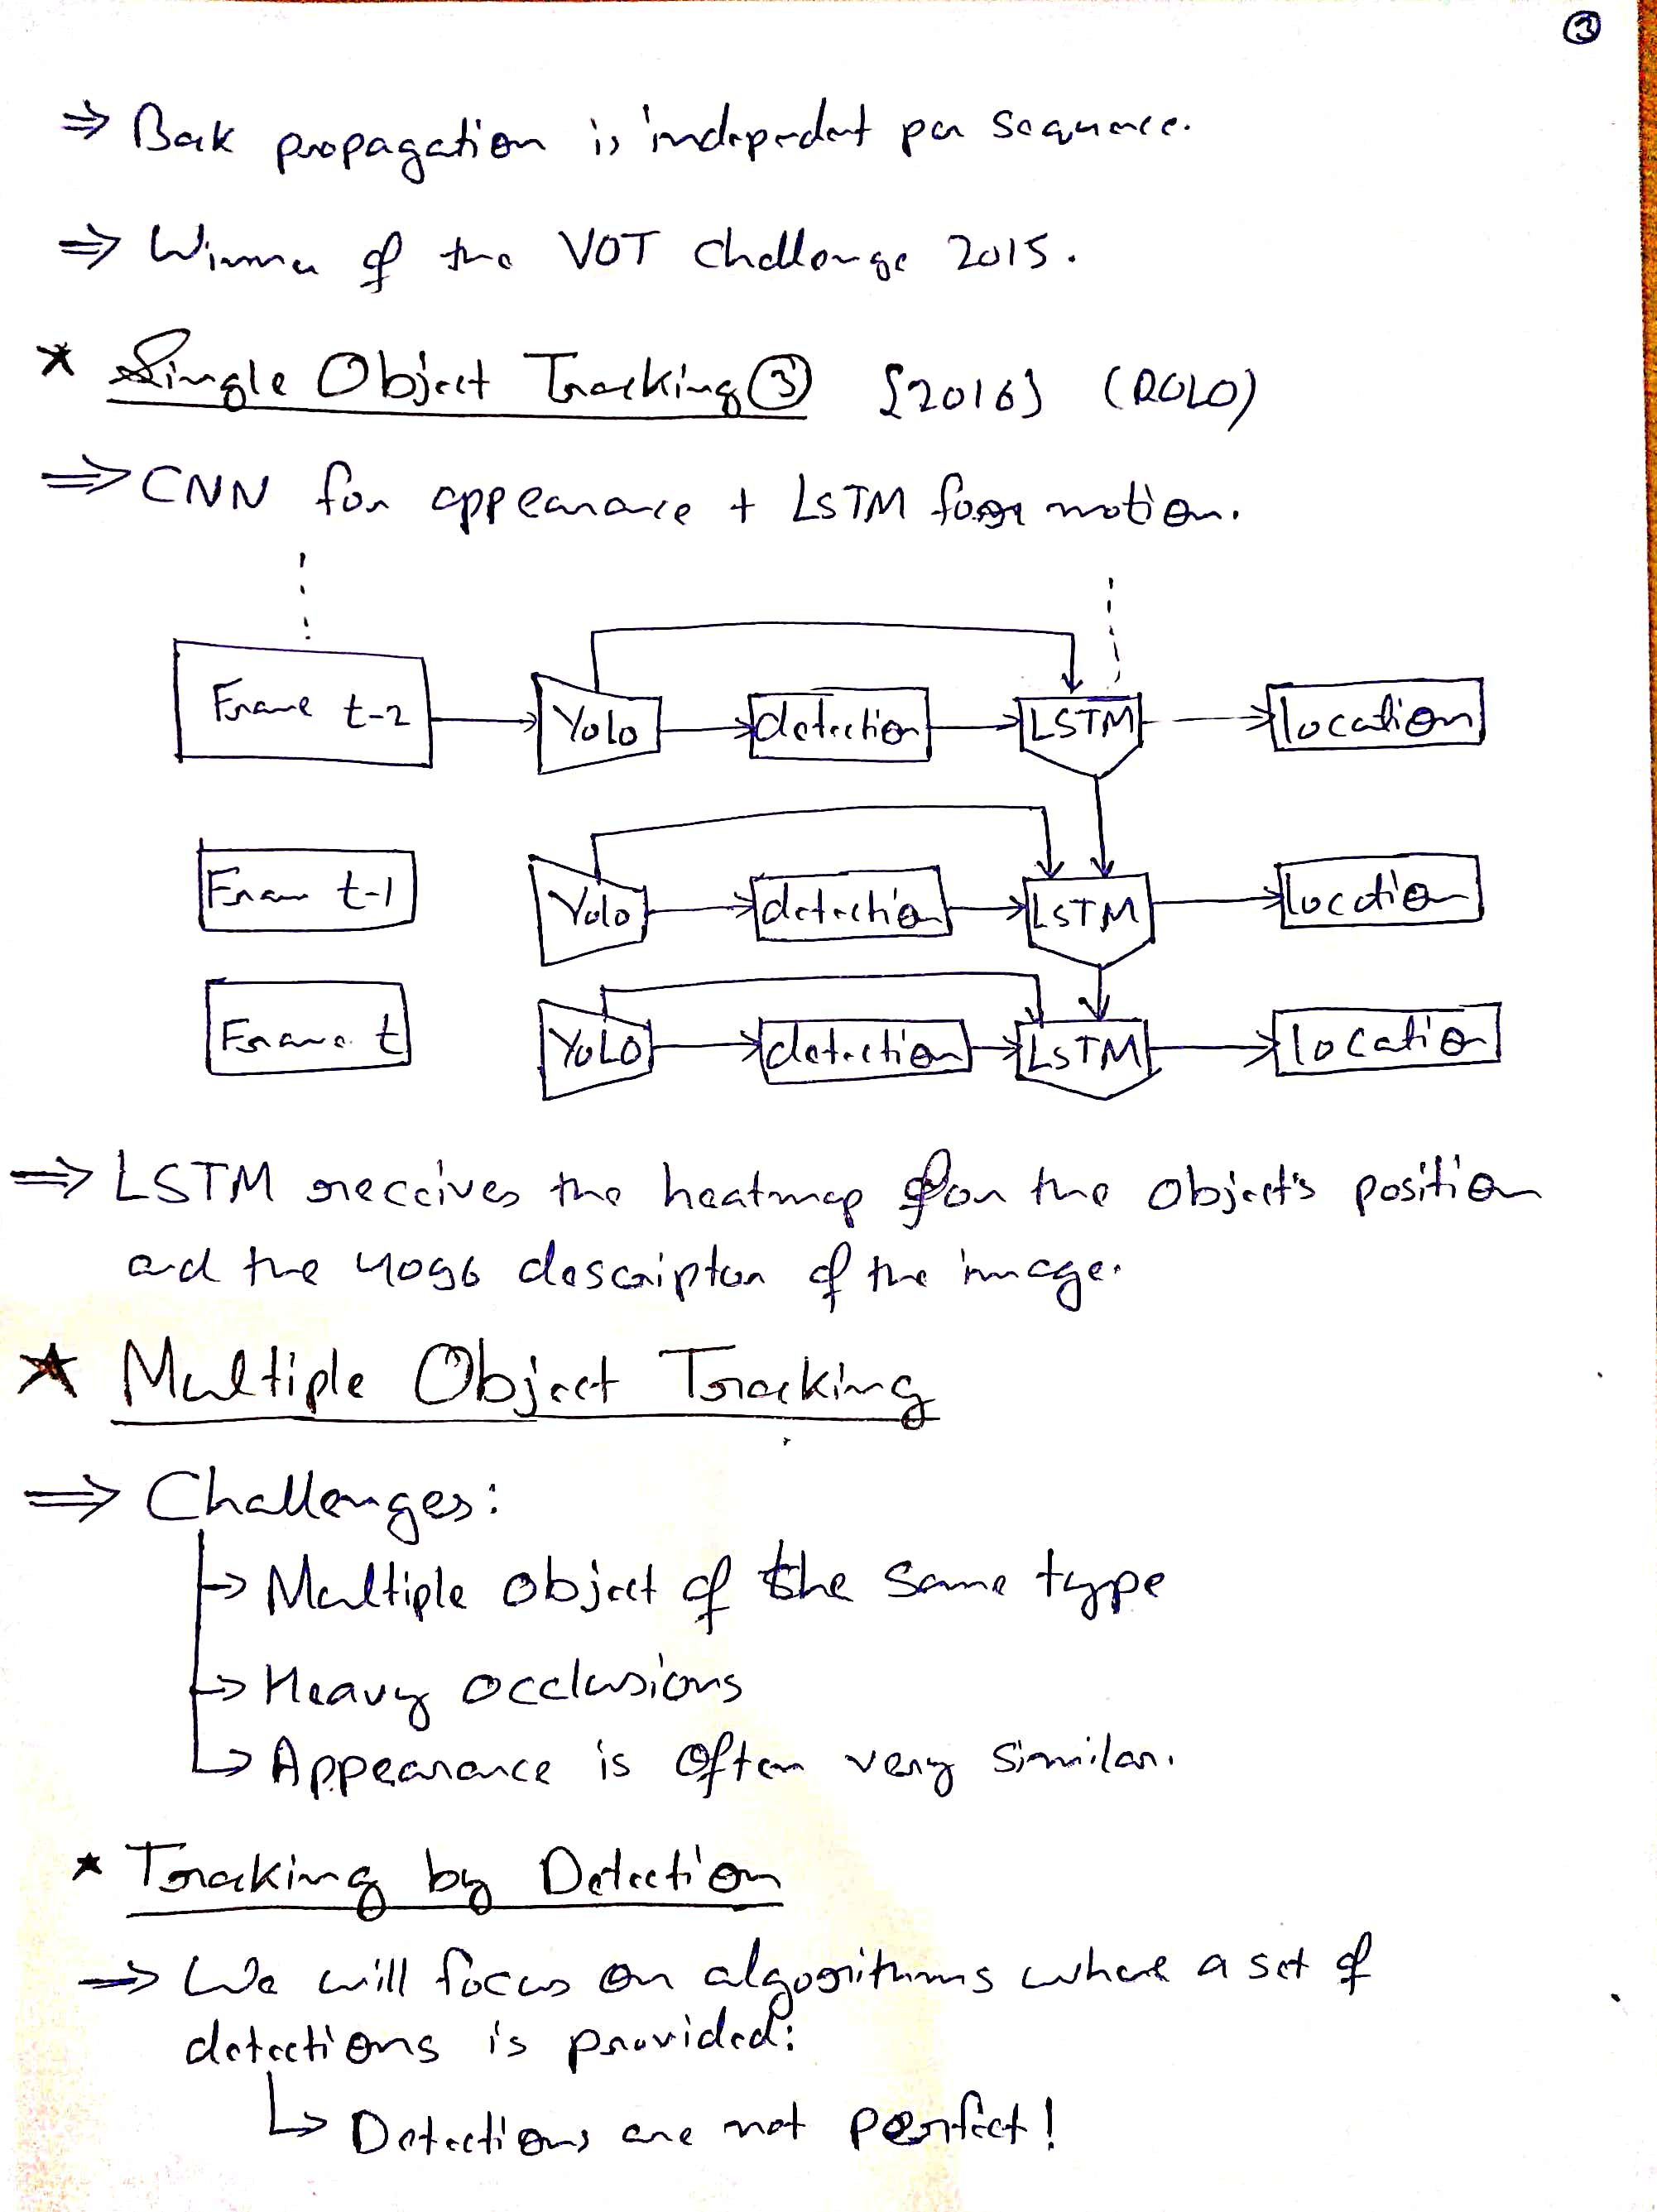 ③
⇒ Back propagation is independent per sequence.
⇒ Winner of the VOT challenge 2015.
* Single Object Tracking ③ {2016} (ROLO)
⇒ CNN for appearance + LSTM for motion.
Frame t-2 Yolo detection LSTM location
Fram t-1 Yolo detection LSTM location
Frame t YOLO detection LSTM location
⇒ LSTM receives the heatmap for the object's position
and the 4096 descriptor of the image.
* Multiple Object Tracking
⇒ Challenges:
↳ Multiple object of the same type
↳ Heavy occlusions
↳ Appearance is often very similar.
* Tracking by Detection
⇒ We will focus on algorithms where a set of
detections is provided:
↳ Detections are not perfect!